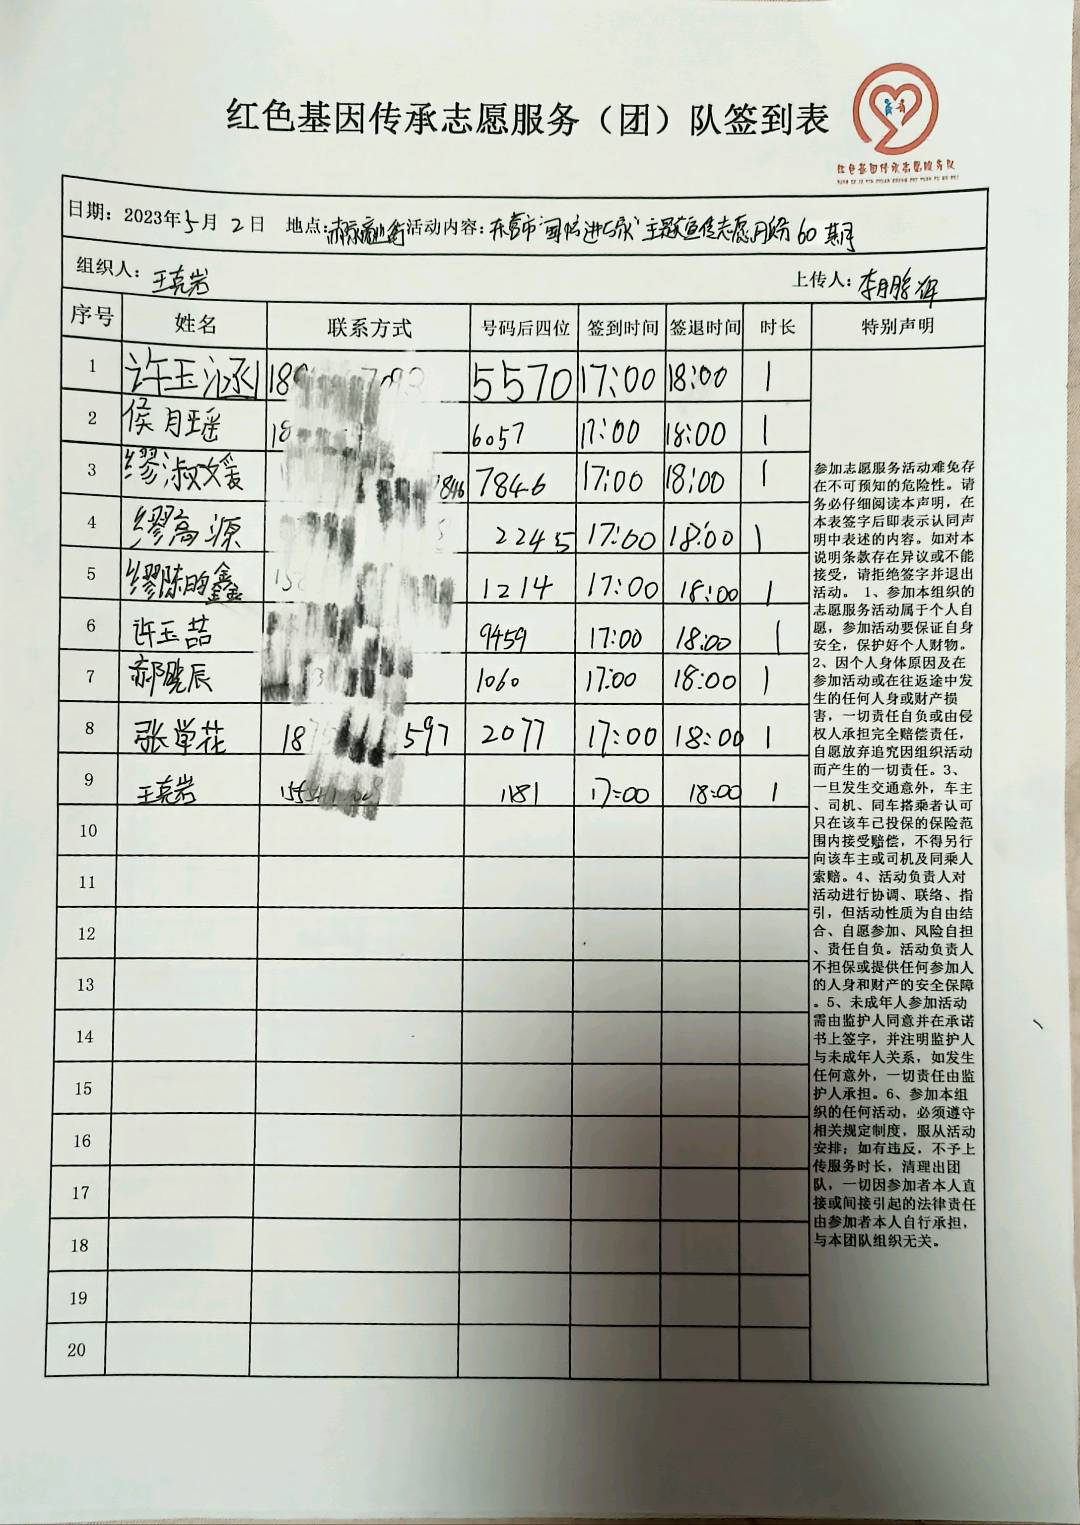 红色基因传承志愿服务（团）队签到表
红色基因传承志愿服务队
日期：2023年5月2日 地点： 活动内容：东营市 主题宣传志愿服务60期
组织人：王克岩 上传人：李鹏辉
序号 姓名 联系方式 号码后四位 签到时间 签退时间 时长 特别声明
1 许玉涵 5570 17:00 18:00 1
2 侯月瑶 6057 17:00 18:00 1
3 缪淑媛 7846 17:00 18:00 1
4 缪高源 2245 17:00 18:00 1
5 缪陈昀鑫 1214 17:00 18:00 1
6 许玉喆 9459 17:00 18:00 1
7 郝晓辰 1060 17:00 18:00 1
8 张学花 2077 17:00 18:00 1
9 王克岩 1181 17:00 18:00 1
10
11
12
13
14
15
16
17
18
19
20
参加志愿服务活动难免存
在不可预知的危险性。请
务必仔细阅读本声明，在
本表签字后即表示认同声
明中表述的内容。如对本
说明条款存在异议或不能
接受，请拒绝签字并退出
活动。 1、参加本组织的
志愿服务活动属于个人自
愿，参加活动要保证自身
安全，保护好个人财物。
2、因个人身体原因及在
参加活动或在往返途中发
生的任何人身或财产损
害，一切责任自负或由侵
权人承担完全赔偿责任，
自愿放弃追究因组织活动
而产生的一切责任。3、
一旦发生交通意外，车主
、司机、同车搭乘者认可
只在该车已投保的保险范
围内接受赔偿，不得另行
向该车主或司机及同乘人
索赔。4、活动负责人对
活动进行协调、联络、指
引，但活动性质为自由结
合、自愿参加、风险自担
、责任自负。活动负责人
不担保或提供任何参加人
的人身和财产的安全保障
。5、未成年人参加活动
需由监护人同意并在承诺
书上签字，并注明监护人
与未成年人关系，如发生
任何意外，一切责任由监
护人承担。6、参加本组
织的任何活动，必须遵守
相关规定制度，服从活动
安排；如有违反，不予上
传服务时长，清理出团
队，一切因参加者本人直
接或间接引起的法律责任
由参加者本人自行承担，
与本团队组织无关。